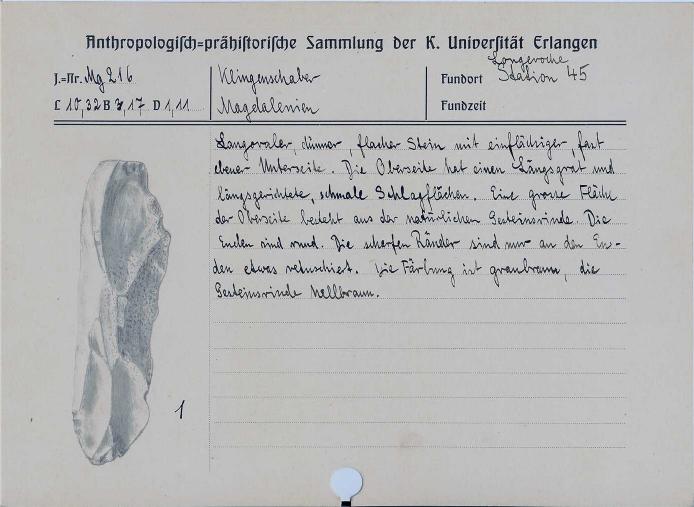 Anthropologisch=prähistorische Sammlung der K. Universität Erlangen
J.=Nr. Mg 216
L 10,32 B 3,17 D 1,11
Klingenschaber
Magdalenien
Longeroche
Fundort Station 45
Fundzeit
Langovaler, dünner, flacher Stein mit einflächiger, fast
ebener Unterseite. Die Oberseite hat einen Längsgrat und
längsgerichtete, schmale Schlagflächen. Eine grosse Fläche
der Oberseite besteht aus der natürlichen Gesteinsrinde. Die
Enden sind rund. Die scharfen Ränder sind nur an den En-
den etwas retuschiert. Die Färbung ist graubraun, die
Gesteinsrinde hellbraun.
1